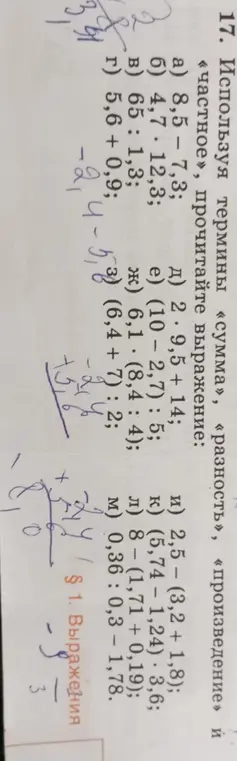 17. Используя термины «сумма», «разность», «произведение» и
«частное», прочитайте выражение:
а) 8,5 – 7,3; д) 2 · 9,5 + 14; и) 2,5 – (3,2 + 1,8);
б) 4,7 · 12,3; е) (10 – 2,7) : 5; к) (5,74 – 1,24) · 3,6;
в) 65 : 1,3; ж) 6,1 · (8,4 : 4); л) 8 – (1,71 + 0,19);
г) 5,6 + 0,9; з) (6,4 + 7) : 2; м) 0,36 : 0,3 – 1,78.
-2,4-5,6
§ 1. Выражения